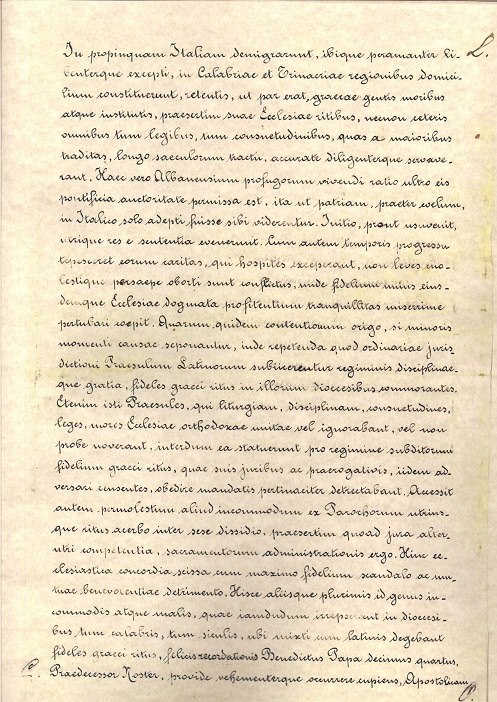 In propinquam Italiam demigrarunt, ibique peramanter li-
benterque excepti, in Calabriae et Trinacriae regionibus domici-
lium constituerunt, retentis, ut par erat, graecae gentis moribus
atque institutis, praesertim suae Ecclesiae ritibus, necnon ceteris
omnibus tum legibus, tum consuetudinibus, quas a maioribus
traditas, longo saeculorum tractu, accurate diligenterque servave-
rant. Haec vero Albanensium profugorum vivendi ratio ultro eis
pontificia auctoritate permissa est, ita ut patriam, praeter coelum,
in Italico solo adepti fuisse sibi viderentur. Initio, prout usuvenit,
utrique res e sententia evenerunt. Cum autem temporis progressu
tepesceret eorum caritas, qui hospites exceperant, non leves mo-
lestique persaepe oborti sunt conflictus, unde fidelium unius eius-
demque Ecclesiae dogmata profitentium tranquillitas miserrime
perturbari coepit. Quarum quidem contentionum origo, si minoris
momenti causae seponantur, inde repetenda quod ordinariae juris-
dictioni Praesulum Latinorum subiicerentur regiminis disciplinae-
que gratia, fideles graeci ritus in illorum dioecesibus commorantes.
Etenim isti Praesules, qui liturgiam, disciplinam, consuetudines,
leges, mores Ecclesiae orthodoxae unitae vel ignorabant, vel non
probe noverant, interdum ea statuerunt pro regimine subditorum
fidelium graeci ritus, quae suis juribus ac praerogativis, iidem ad-
versari censentes, obedire mandatis pertinaciter detrectabant. Accessit
autem permolestum aliud incommodum ex Parochorum utrius-
que ritus acerbo inter sese dissidio, praesertim quoad jura alter-
utri competentia, sacramentorum administrationis ergo. Hinc ec-
clesiastica concordia scissa cum maximo fidelium scandalo ac mu-
tuae benevolentiae detrimento. Hisce aliisque plurimis id genus in-
commodis atque malis, quae iamdudum irrepserant in dioecesi-
bus tum calabris, tum siculis, ubi mixti cum latinis degebant
fideles graeci ritus, felicis recordationis Benedictus Papa decimus quartus,
Praedecessor Noster, provide vehementerque occurrere cupiens, Apostolicam